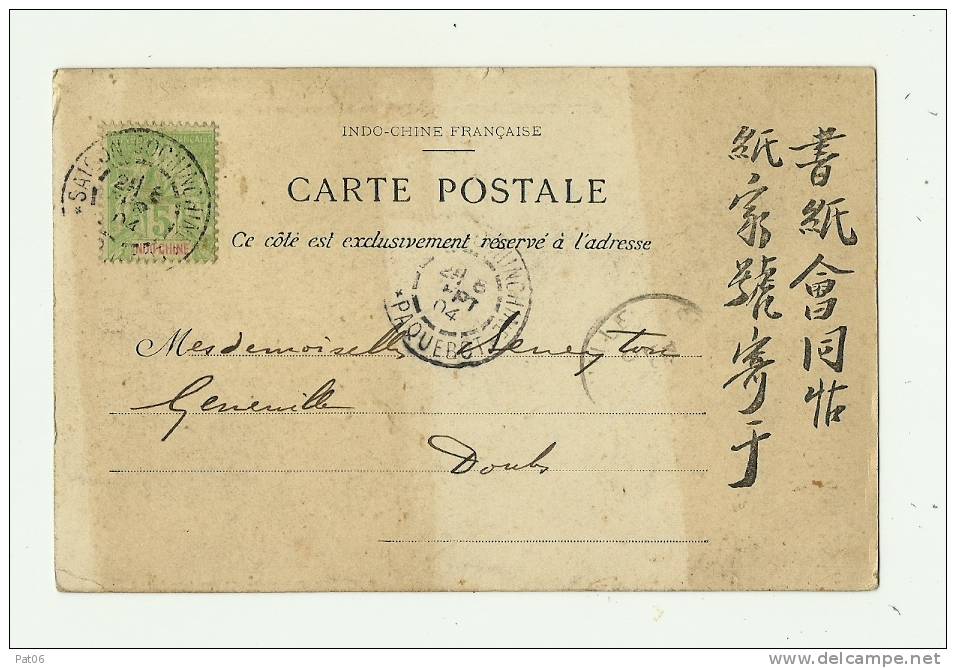 INDO-CHINE FRANÇAISE
CARTE POSTALE
Ce côté est exclusivement réservé à l'adresse
5
INDO-CHINE
SAIGON COCHINCHINE
04
PAQUEBOT
04
Mesdemoiselles
Doubs
書紙會同帖
紙家號寄于
Pat06
www.delcampe.net